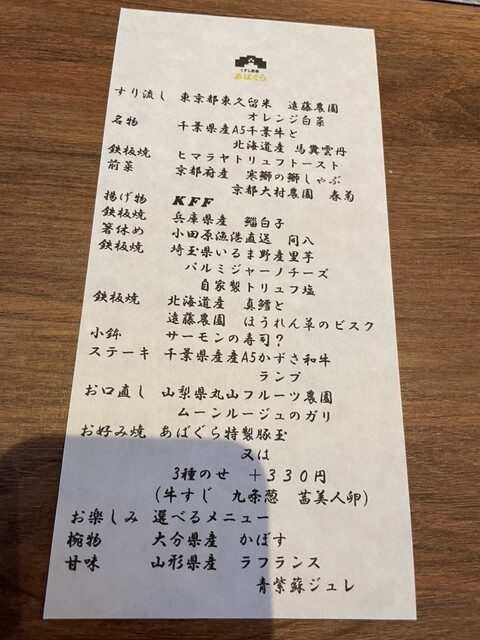 あばぐら
すり流し 東京都東久留米 遠藤農園
オレンジ白菜
名物 千葉県産A5千葉牛と
北海道産 馬糞雲丹
鉄板焼 ヒマラヤトリュフトースト
前菜 京都府産 寒鰤の鰤しゃぶ
京都大村農園 春菊
揚げ物 KFF
鉄板焼 兵庫県産 鯔白子
箸休め 小田原漁港直送 間八
鉄板焼 埼玉県いるま野産里芋
パルミジャーノチーズ
自家製トリュフ塩
鉄板焼 北海道産 真鱈と
遠藤農園 ほうれん草のビスク
小鉢 サーモンの寿司?
ステーキ 千葉県産産A5かずさ和牛
ランプ
お口直し 山梨県丸山フルーツ農園
ムーンルージュのガリ
お好み焼 あばぐら特製豚玉
又は
3種のせ +330円
(牛すじ 九条葱 茜美人卵)
お楽しみ 選べるメニュー
椀物 大分県産 かぼす
甘味 山形県産 ラフランス
青紫蘇ジュレ